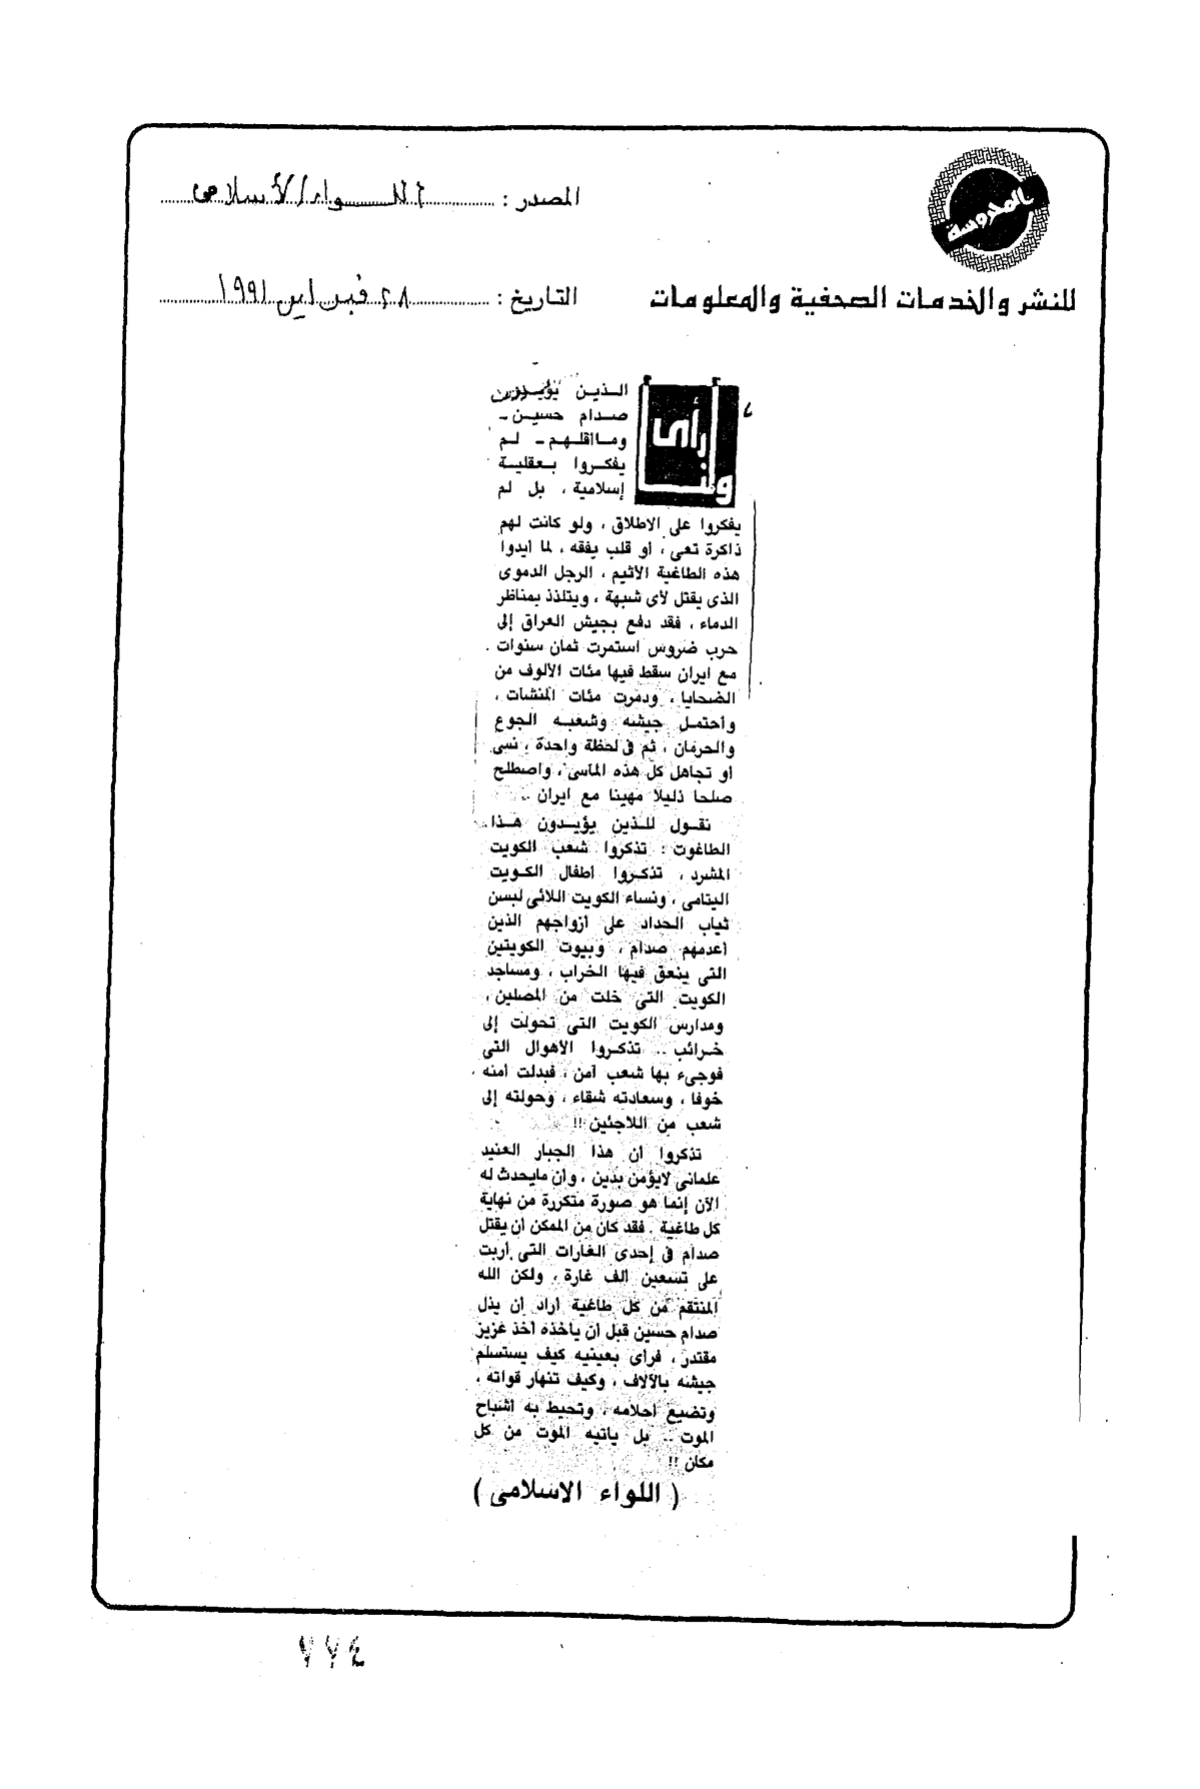 المحروسة
المصدر : اللواء الأسلامى
للنشر والخدمات الصحفية والمعلومات
التاريخ : ٢٨ فبراير ١٩٩١
ولنا رأى
الذين يؤيدون
صدام حسين -
وما اقلهم - لم
يفكروا بعقلية
إسلامية ، بل لم
يفكروا على الاطلاق ، ولو كانت لهم
ذاكرة تعى ، أو قلب يفقه ، لما أيدوا
هذه الطاغية الأثيم ، الرجل الدموى
الذى يقتل لأى شبهة ، ويتلذذ بمناظر
الدماء ، فقد دفع بجيش العراق إلى
حرب ضروس استمرت ثمان سنوات .
مع ايران سقط فيها مئات الألوف من
الضحايا ، ودمرت مئات المنشات ،
وأحتمل جيشه وشعبه الجوع
والحرمان ، ثم فى لحظة واحدة ، نسى
او تجاهل كل هذه الماسى ، واصطلح
صلحا ذليلا مهينا مع ايران ..
نقول للذين يؤيدون هذا
الطاغوت : تذكروا شعب الكويت
المشرد ، تذكروا اطفال الكويت
اليتامى ، ونساء الكويت اللائى لبسن
ثياب الحداد على أزواجهم الذين
أعدمهم صدام ، وبيوت الكويتين
التى ينعق فيها الخراب ، ومساجد
الكويت التى خلت من المصلين ،
ومدارس الكويت التى تحولت إلى
خرائب .. تذكروا الأهوال التى
فوجىء بها شعب آمن ، فبدلت امنه
خوفا ، وسعادته شقاء ، وحولته إلى
شعب من اللاجئين !!
تذكروا ان هذا الجبار العنيد
علمانى لايؤمن بدين ، وأن مايحدث له
الآن إنما هو صورة متكررة من نهاية
كل طاغية . فقد كان من الممكن ان يقتل
صدام فى إحدى الغارات التى أربت
على تسعين ألف غارة ، ولكن الله
المنتقم من كل طاغية أراد أن يذل
صدام حسين قبل ان ياخذه أخذ عزيز
مقتدر ، فرأى بعينيه كيف يستسلم
جيشه بالآلاف ، وكيف تنهار قواته ،
وتضيع أحلامه ، وتحيط به أشباح
الموت .. بل ياتيه الموت من كل
مكان !!
( اللواء الاسلامى )
٧٧٤